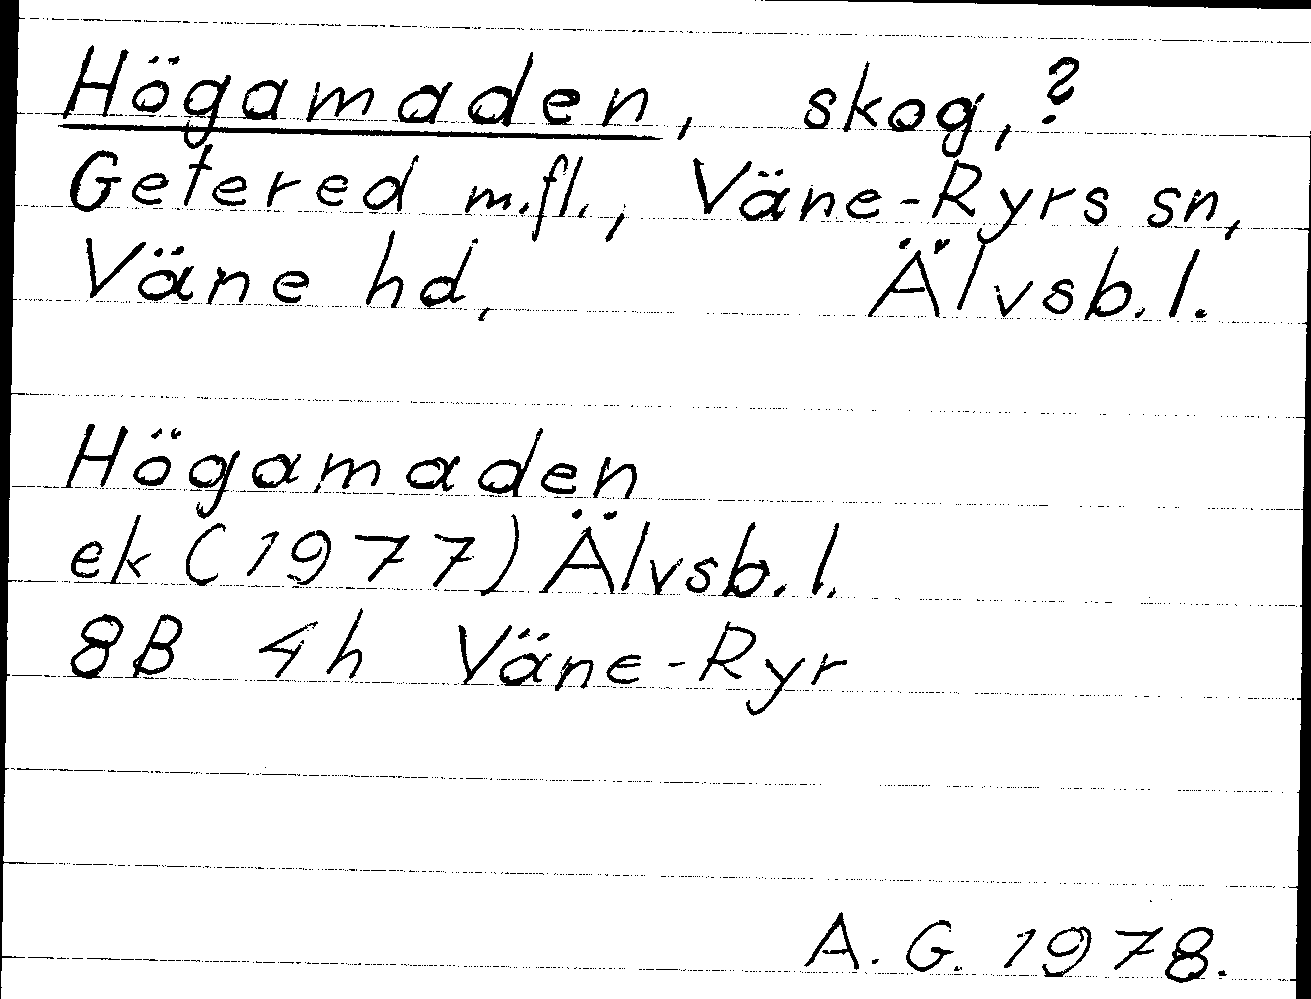 Högamaden, skog,?
Getered m.fl., Väne-Ryrs sn,
Väne hd, Älvsb.l.
Högamaden
ek (1977) Älvsb.l.
8B 4h Väne-Ryr
A.G. 1978.